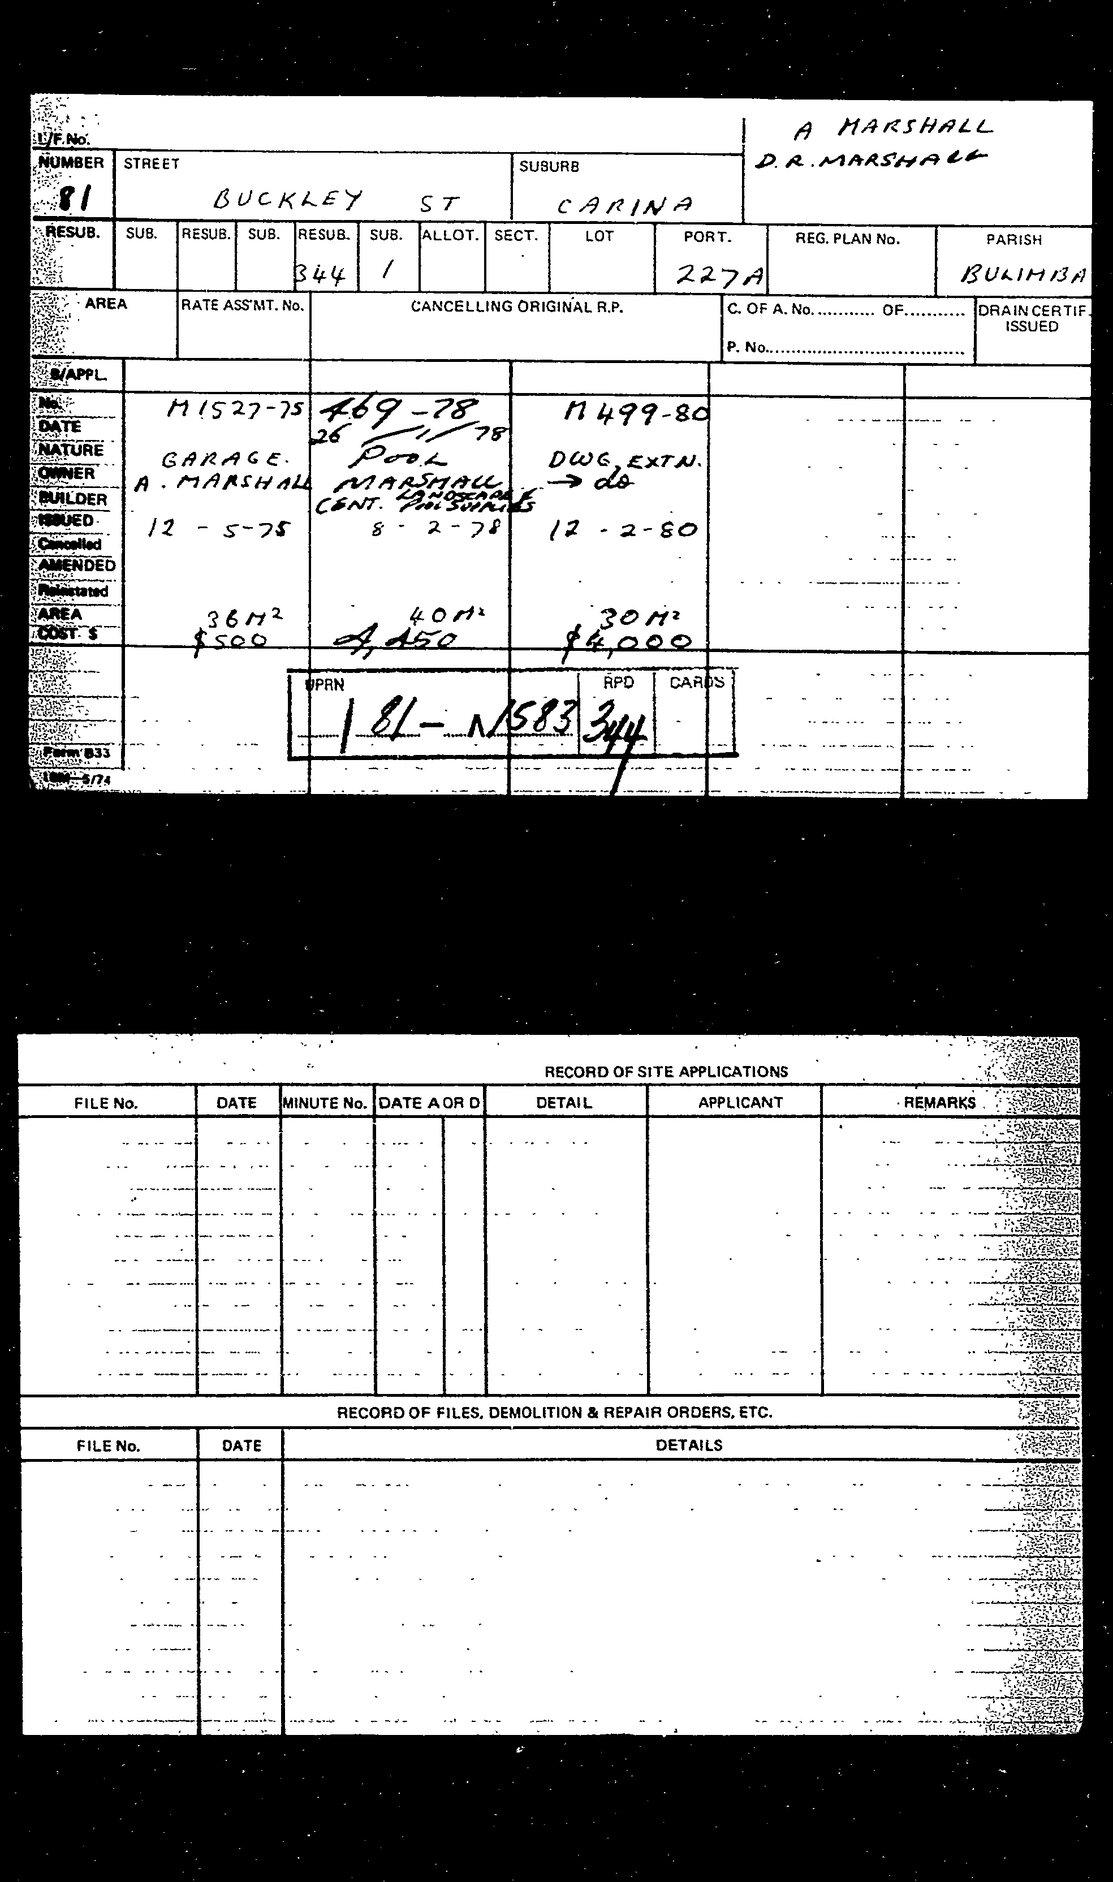 L/F.No.
A MARSHALL
D.R. MARSHALL
NUMBER STREET SUBURB
81 BUCKLEY ST CARINA
RESUB. SUB. RESUB. SUB. RESUB. SUB. ALLOT. SECT. LOT PORT. REG. PLAN No. PARISH
344 1 227A BULIMBA
AREA RATE ASS'MT. No. CANCELLING ORIGINAL R.P. C. OF A. No............ OF........... DRAIN CERTIF.
ISSUED
P. No.......................................
B/APPL.
No. M1527-75 469-78 M499-80
DATE 26/1/78
NATURE GARAGE. POOL DWG, EXTN.
OWNER A. MARSHALL MARSHALL → do
BUILDER CENT. LANDSCAPE &
POOL SUPPLIES
ISSUED 12-5-75 8-2-78 12-2-80
Cancelled
AMENDED
Reinstated
AREA 36M² 40M² 30M²
COST. $ $500 4,450 $4,000
UPRN RPD CARDS
1 81- N1583 344
Form B33
5/74
RECORD OF SITE APPLICATIONS
FILE No. DATE MINUTE No. DATE A OR D DETAIL APPLICANT REMARKS
RECORD OF FILES, DEMOLITION & REPAIR ORDERS, ETC.
FILE No. DATE DETAILS